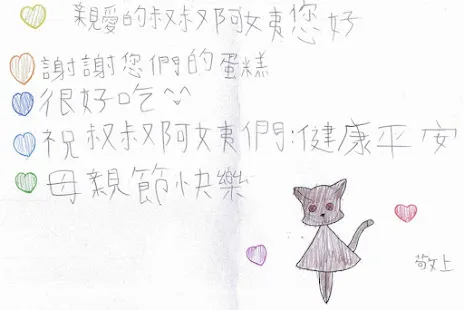 親愛的叔叔阿姨您好
謝謝您們的蛋糕
很好吃^^
祝叔叔阿姨們:健康平安
母親節快樂
敬上